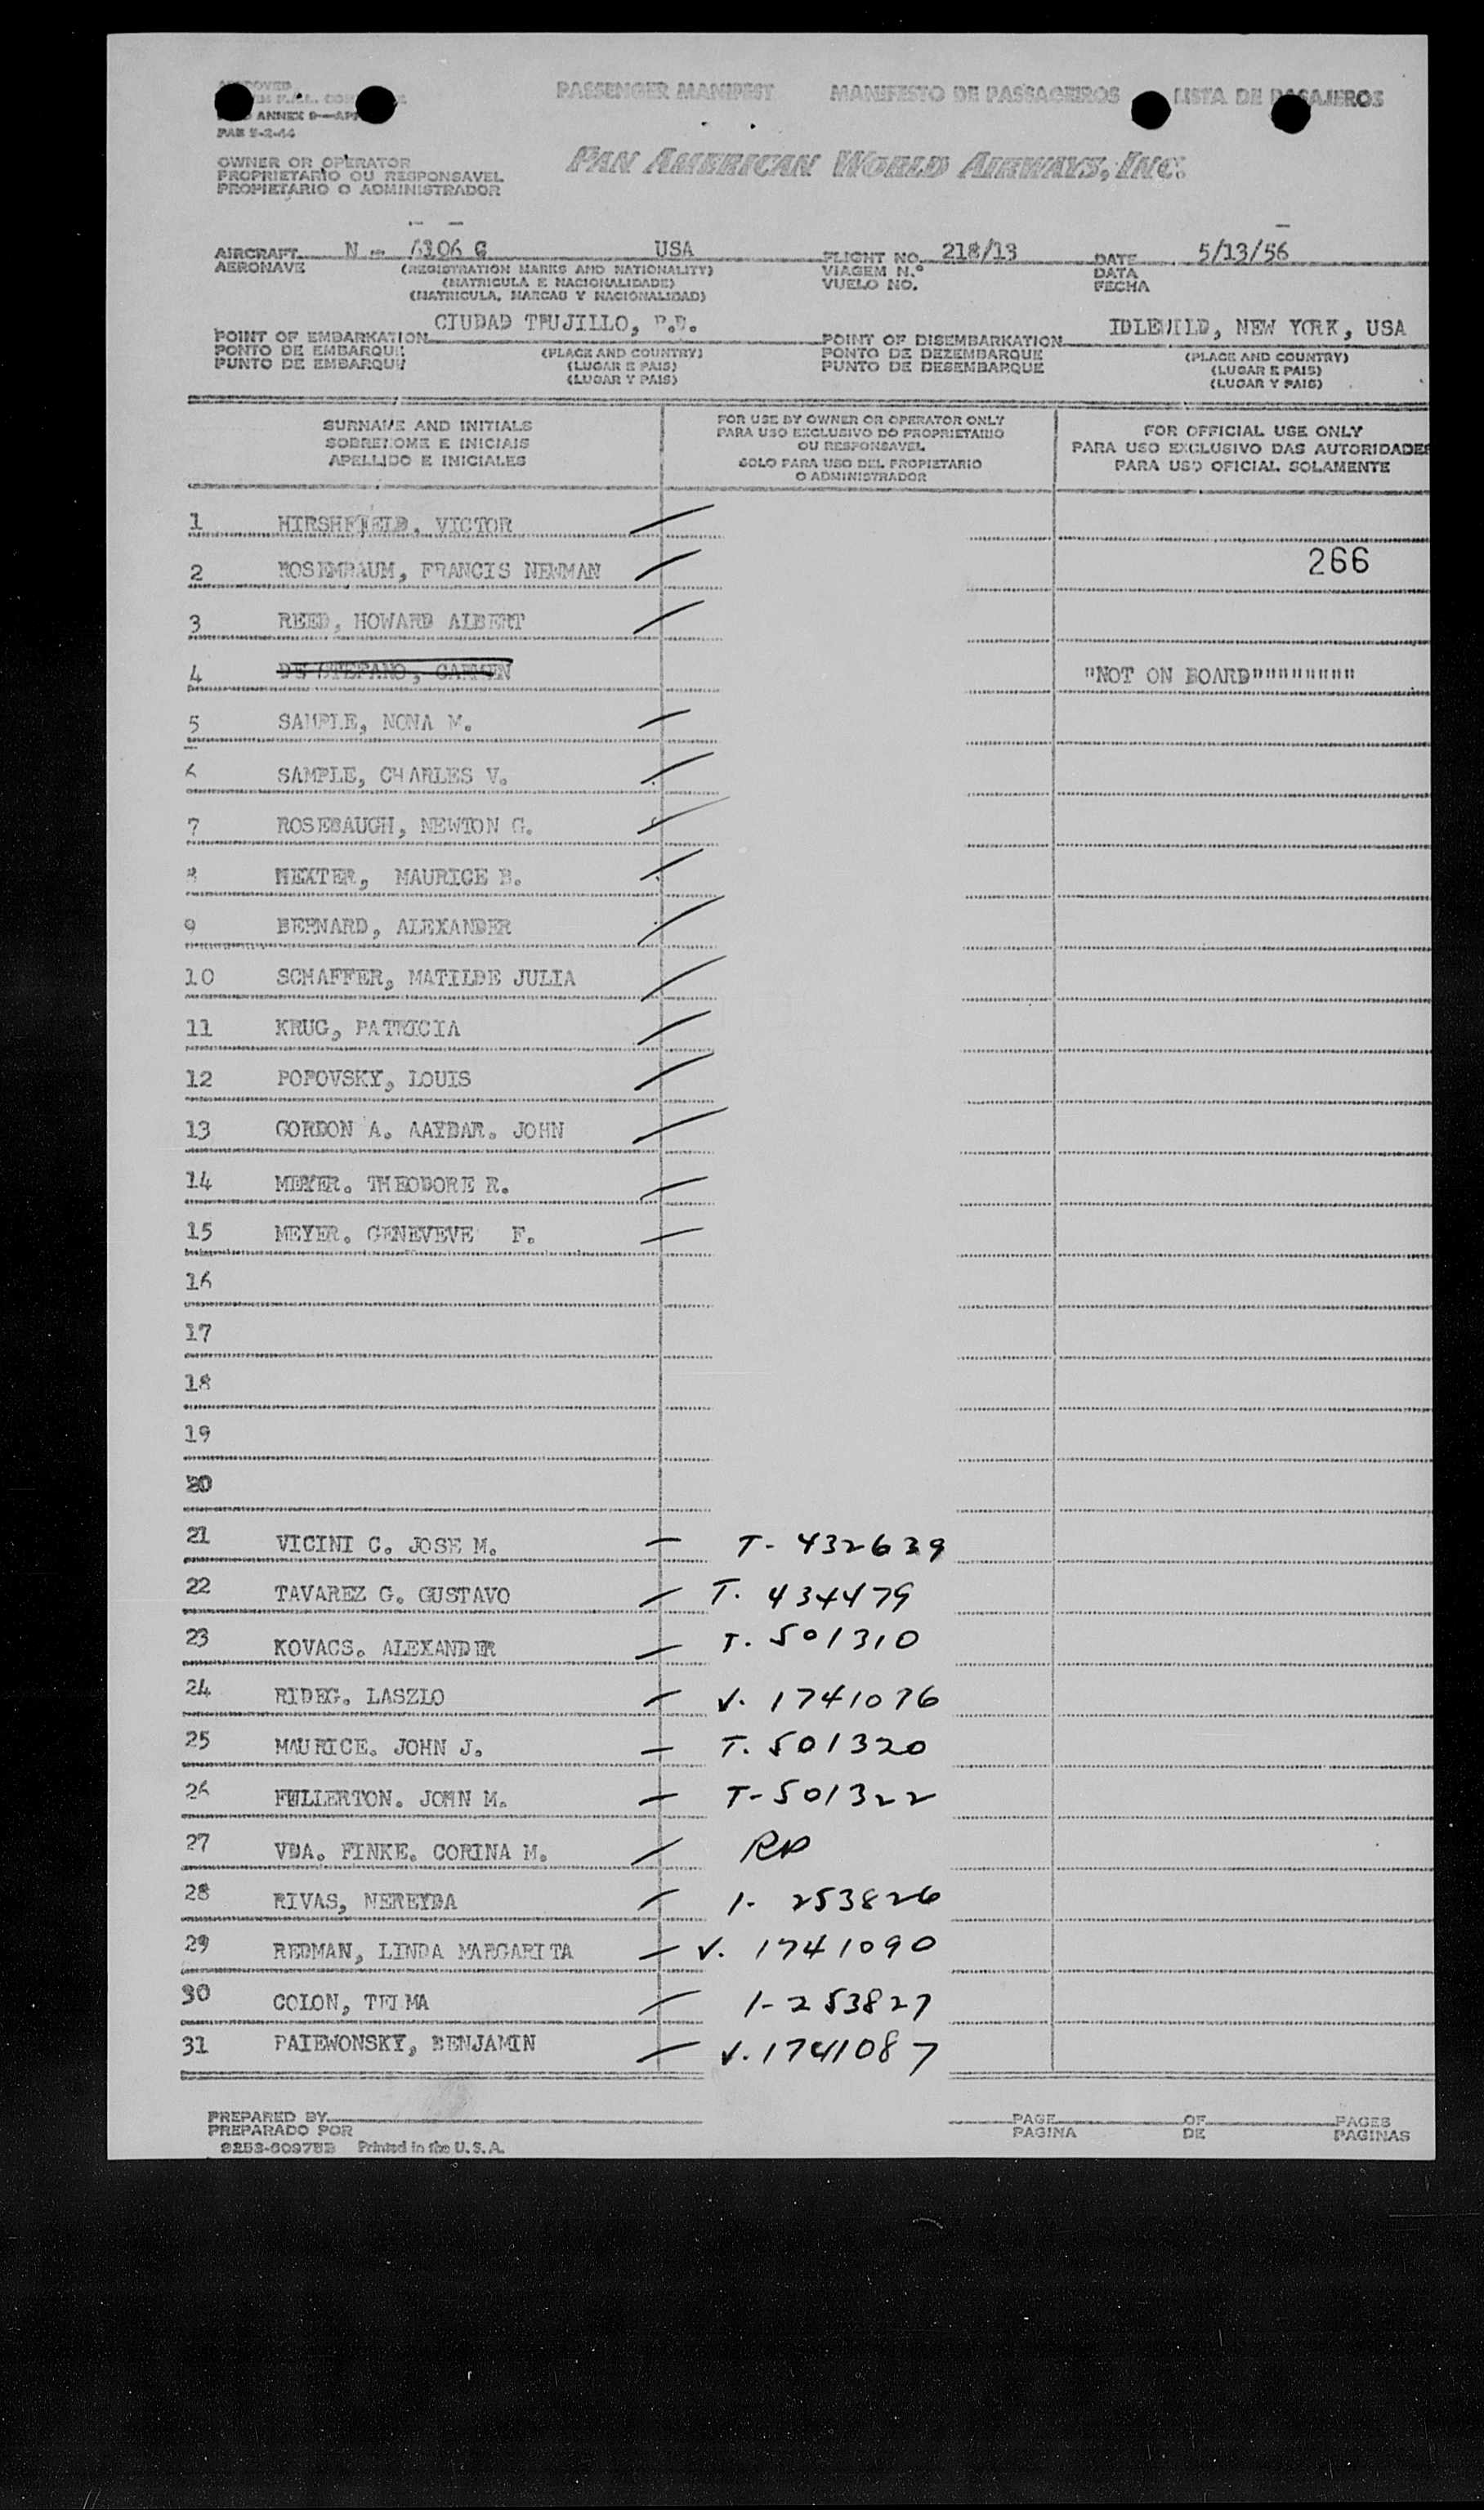 PASSENGER MANIFEST MANIFESTO DE PASSAGEIROS LISTA DE PASAJEROS
ANNEX 9
OWNER OR OPERATOR
PROPRIETARIO OU RESPONSAVEL
PROPIETARIO O ADMINISTRADOR
PAN AMERICAN WORLD AIRWAYS, INC.
AIRCRAFT N - 6106 G USA FLIGHT NO. 218/13 DATE 5/13/56
AERONAVE (REGISTRATION MARKS AND NATIONALITY) VIAGEM N.º DATA
(MATRICULA E NACIONALIDADE) VUELO NO. FECHA
(MATRICULA, MARCAS Y NACIONALIDAD)
CIUDAD TRUJILLO, R.D. IDLEWILD, NEW YORK, USA
POINT OF EMBARKATION POINT OF DISEMBARKATION
PONTO DE EMBARQUE (PLACE AND COUNTRY) PONTO DE DEZEMBARQUE (PLACE AND COUNTRY)
PUNTO DE EMBARQUE (LUGAR E PAIS) PUNTO DE DESEMBARQUE (LUGAR E PAIS)
(LUGAR Y PAIS) (LUGAR Y PAIS)
SURNAME AND INITIALS
SOBRENOME E INICIAIS
APELLIDO E INICIALES
FOR USE BY OWNER OR OPERATOR ONLY
PARA USO EXCLUSIVO DO PROPRIETARIO
OU RESPONSAVEL
SOLO PARA USO DEL PROPIETARIO
O ADMINISTRADOR
FOR OFFICIAL USE ONLY
PARA USO EXCLUSIVO DAS AUTORIDADES
PARA USO OFICIAL SOLAMENTE
1 HIRSHFIELD, VICTOR
2 ROSEMBAUM, FRANCIS NEWMAN 266
3 REED, HOWARD ALBERT
4 DE STEFANO, CARMEN "NOT ON BOARD"""""""""
5 SAMPLE, NONA M.
6 SAMPLE, CHARLES V.
7 ROSEBAUGH, NEWTON G.
8 HEXTER, MAURICE B.
9 BERNARD, ALEXANDER
10 SCHAFFER, MATILDE JULIA
11 KRUG, PATRICIA
12 POPOVSKY, LOUIS
13 GORDON A. AAYBAR. JOHN
14 MEYER. THEODORE R.
15 MEYER. GENEVEVE F.
16
17
18
19
20
21 VICINI C. JOSE M. T- 432639
22 TAVAREZ G. GUSTAVO T. 434479
23 KOVACS. ALEXANDER T. 501310
24 RIDEG. LASZLO V. 1741076
25 MAURICE. JOHN J. T. 501320
26 FULLERTON. JOHN M. T-501322
27 VDA. FINKE. CORINA M. RP
28 RIVAS, NEREYDA 1- 253826
29 REDMAN, LINDA MARGARITA V. 1741090
30 COLON, TELMA 1-253827
31 PAIEWONSKY, BENJAMIN V. 1741087
PREPARED BY PAGE OF PAGES
PREPARADO POR PAGINA DE PAGINAS
Printed in the U.S.A.